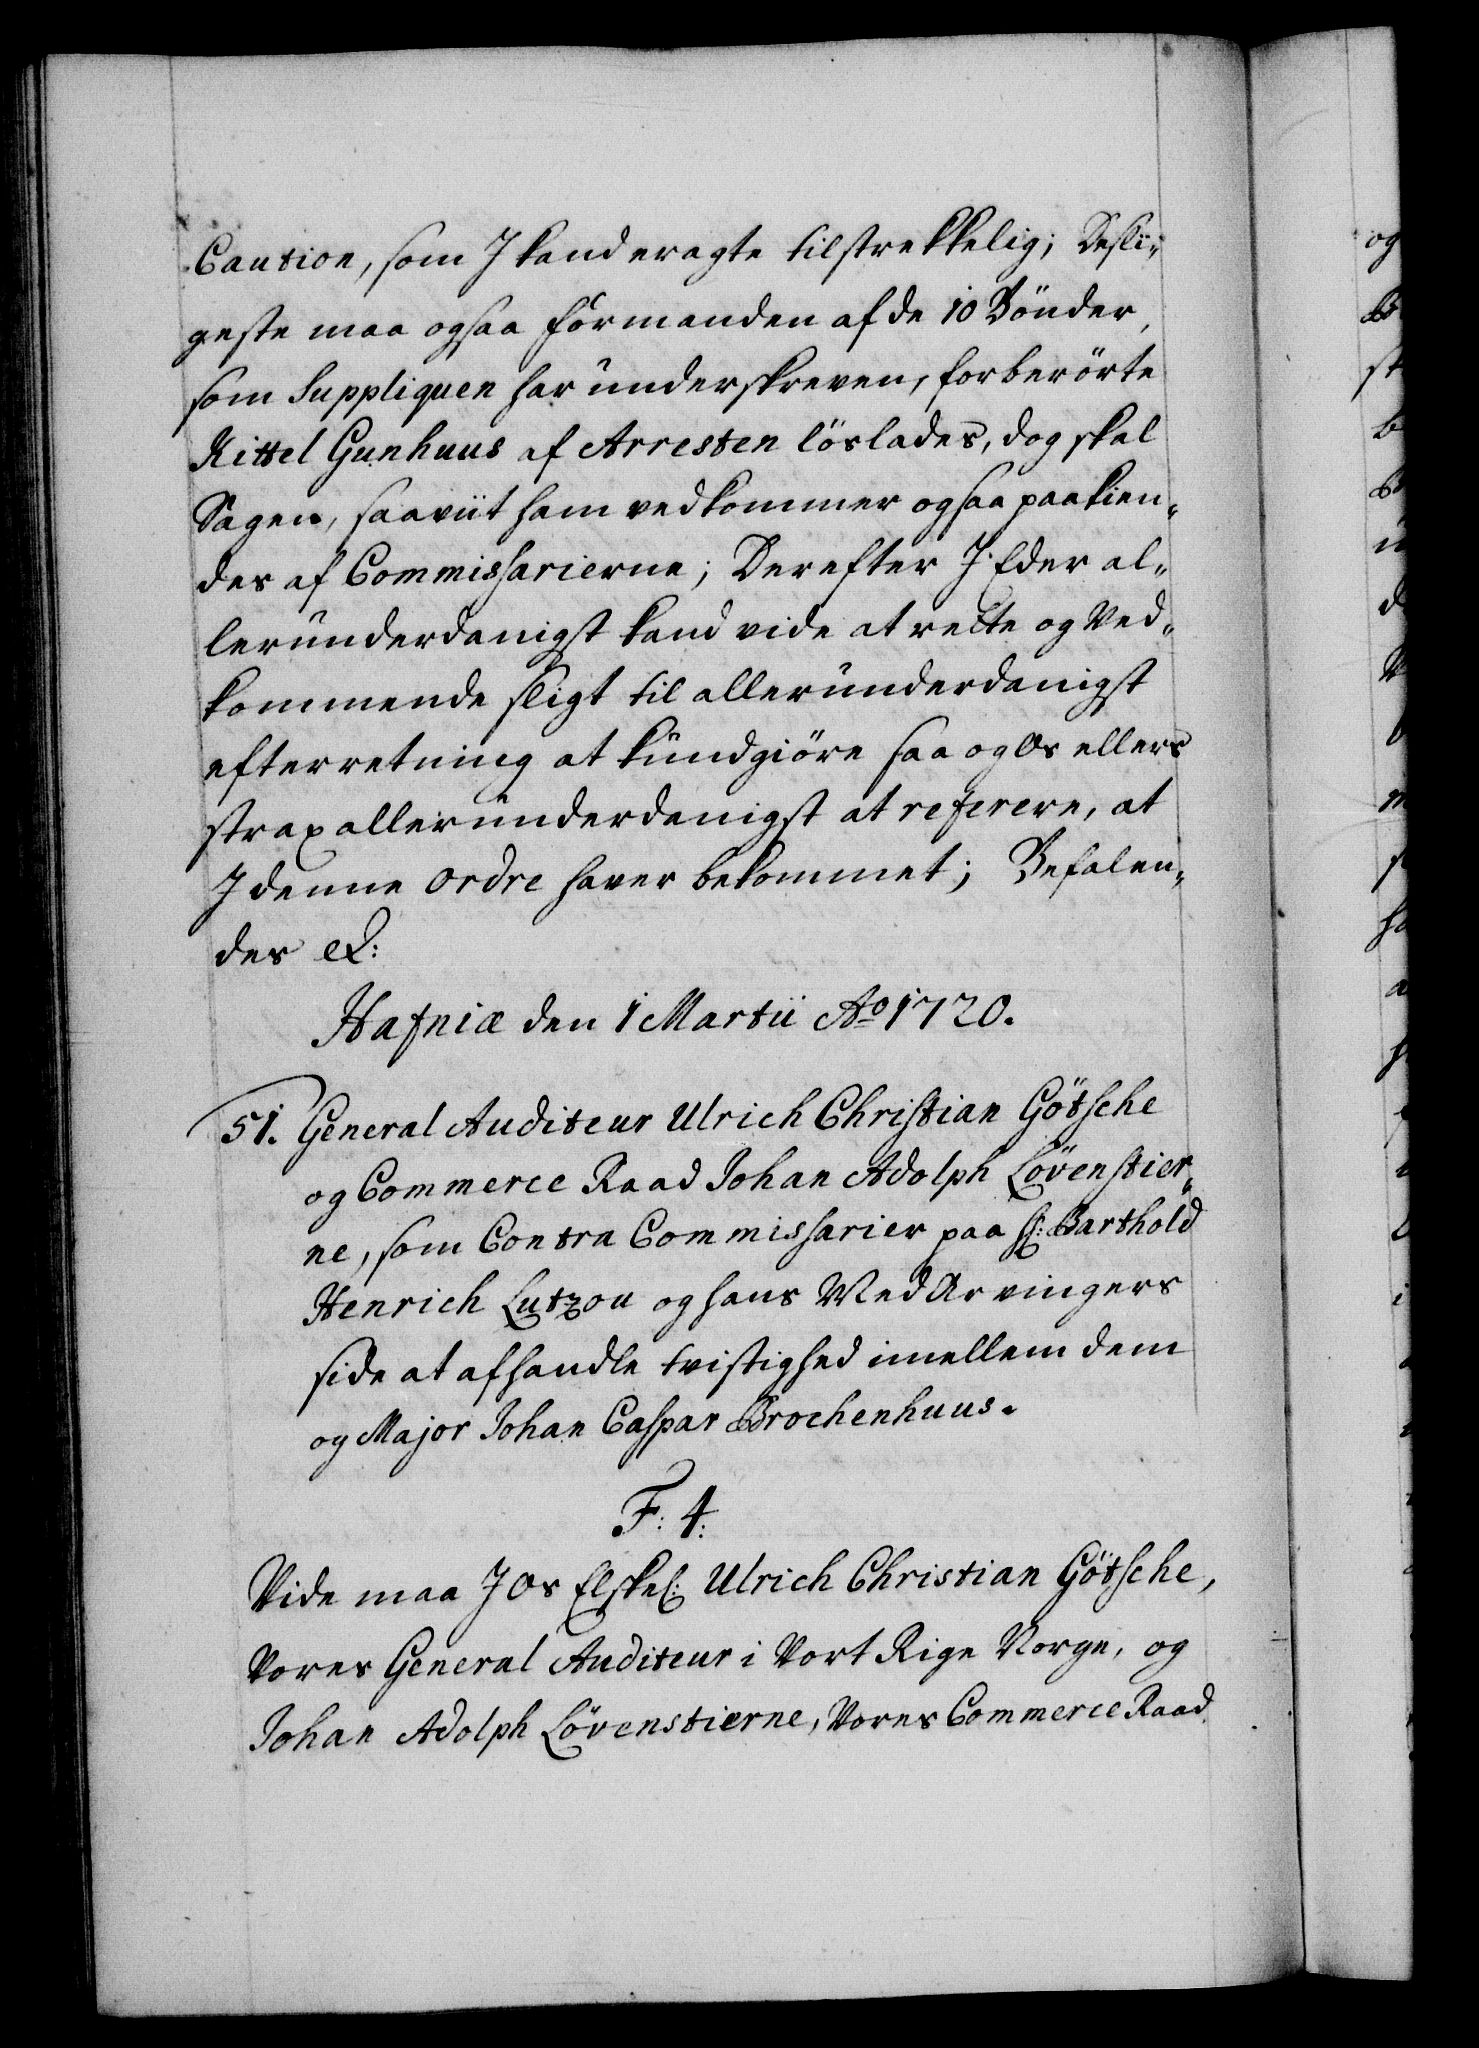 Caution, som J kand eragte tilstrekkelig; Desli„
geste maa ogsaa formanden af de 10 Bönder,
som Suppliquen har underskreven, forberörte
Kittel Gunhuus af Arresten löslades, dog skal
Sagen, saaviit ham vedkommer ogsaa paakien„
des af Commissarierne; Derefter J Eder al„
lerunderdanigst kand vide at rette og Ved„
kommende sligt til allerunderdanigst
efterretning at kundgiöre saa og Os ellers
strax allerunderdanigst at referere, at
J denne Ordre haver bekommet; Befalen„
des etc:
Hafniæ den 1 Martii Ao 1720.
51. General Auditeur Ulrich Christian Götsche
og Commerce Raad Johan Adolph Lövenstier„
ne, som Contra Commissarier paa Hr: Barthold
Henrich Lutzou og hans Med Arvingers
side at afhandle tvistighed imellem dem
og Major Johan Caspar Brochenhuus.
F: 4:
Vide maa J Os Elskel: Ulrich Christian Götsche,
Vores General Auditeur i Vort Rige Norge, og
Johan Adolph Lövenstierne, Vores Commerce Raad